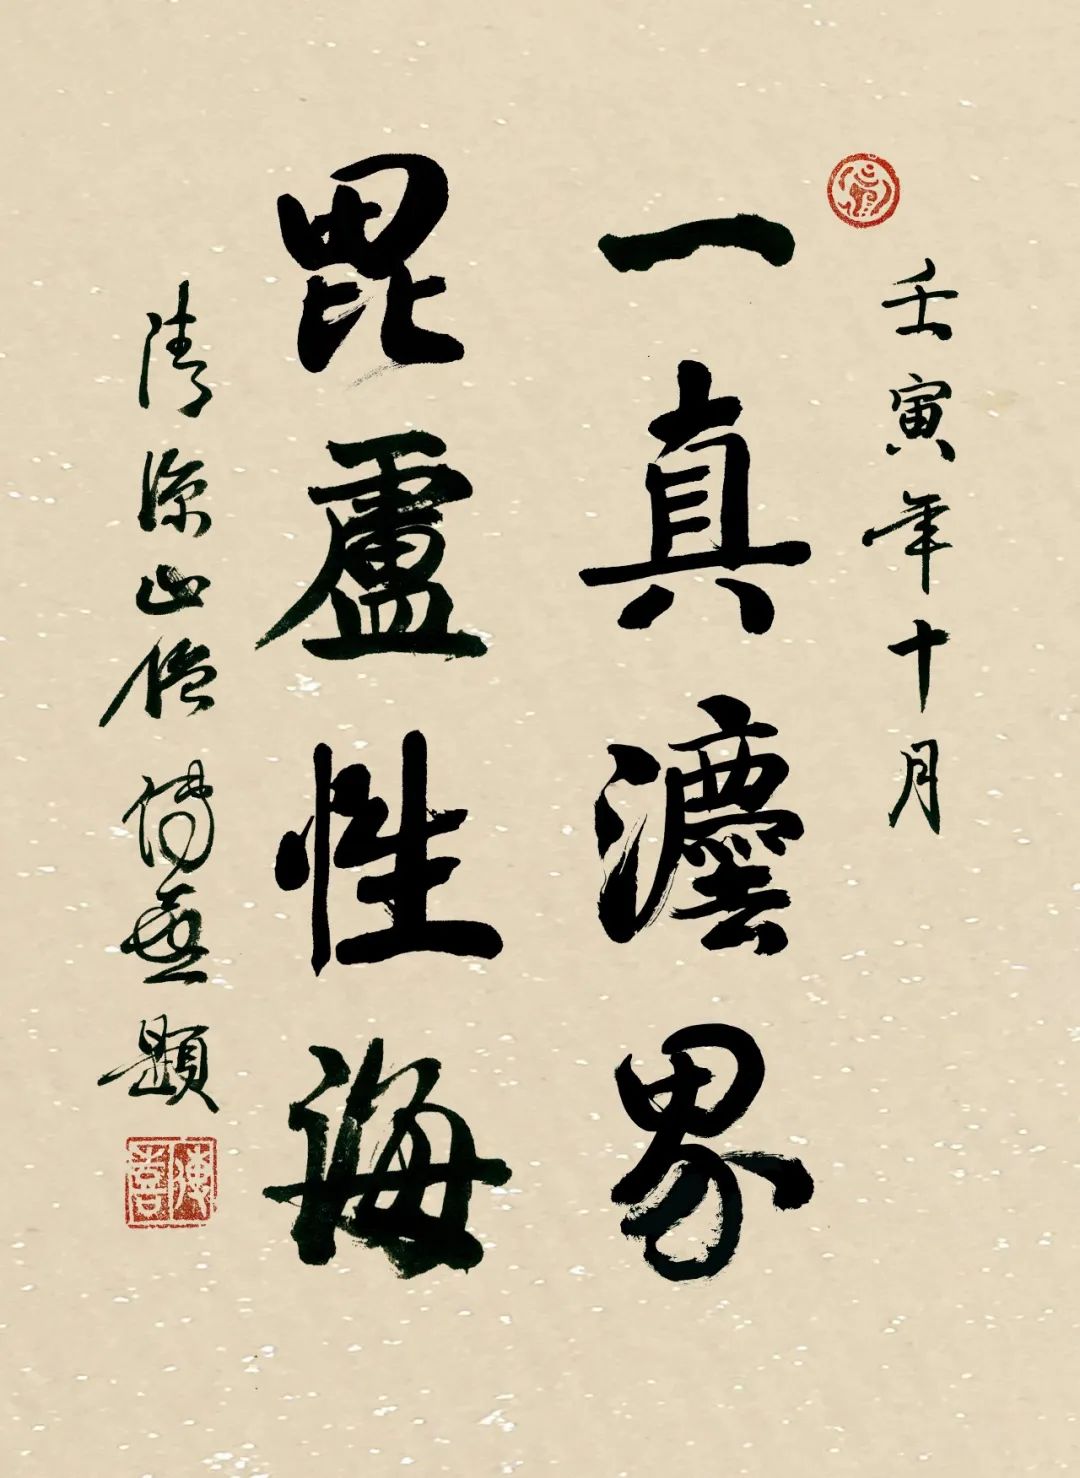 壬寅年十月
一真灋界
毘盧性海
清涼山僧傳喜題
傳喜